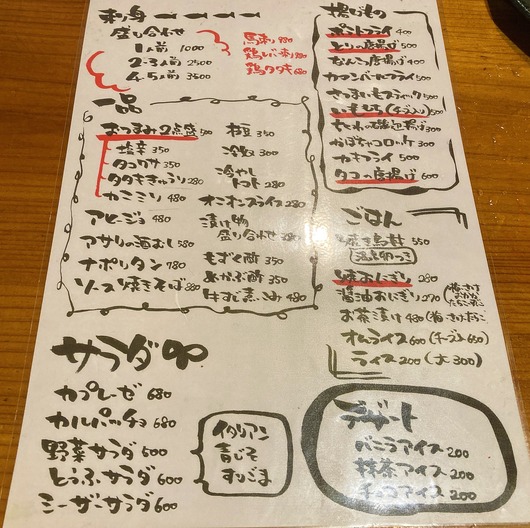 刺身
盛り合わせ
1人前 1000
2-3人前 2500
4-5人前 3500
馬刺 980
鶏レバー刺 980
鶏タタキ 680
一品
おつまみ2点盛 500
塩辛 350
タコワサ 350
タタキきゅうり 280
カニミソ 480
アヒージョ 480
アサリの酒むし 580
ナポリタン 780
ソース焼きそば 880
枝豆 350
冷奴 300
冷やし
トマト 280
オニオンスライス 280
漬け物
盛り合わせ
もずく酢 350
めかぶ酢 350
牛すじ煮込 480
サラダ
カプレーゼ 680
カルパッチョ 680
野菜サラダ 500
とうふサラダ 600
シーザーサラダ 600
イタリアン
青じそ
すりごま
揚げもの
ポテトフライ 400
とりの唐揚げ 500
なんこつ唐揚げ 400
カマンベールフライ 500
さつまいもスティック 500
いももち(チーズ入り) 500
ちくわの磯辺揚げ 300
かぼちゃコロッケ 300
カキフライ 500
タコの唐揚げ 600
ごはん
焼き鳥丼 550
温泉卵つき
焼おにぎり 280
醤油おにぎり 270
お茶漬け 480
オムライス 600 (チーズ入 650)
ライス 200 (大 300)
デザート
バニラアイス 200
抹茶アイス 200
チョコアイス 200